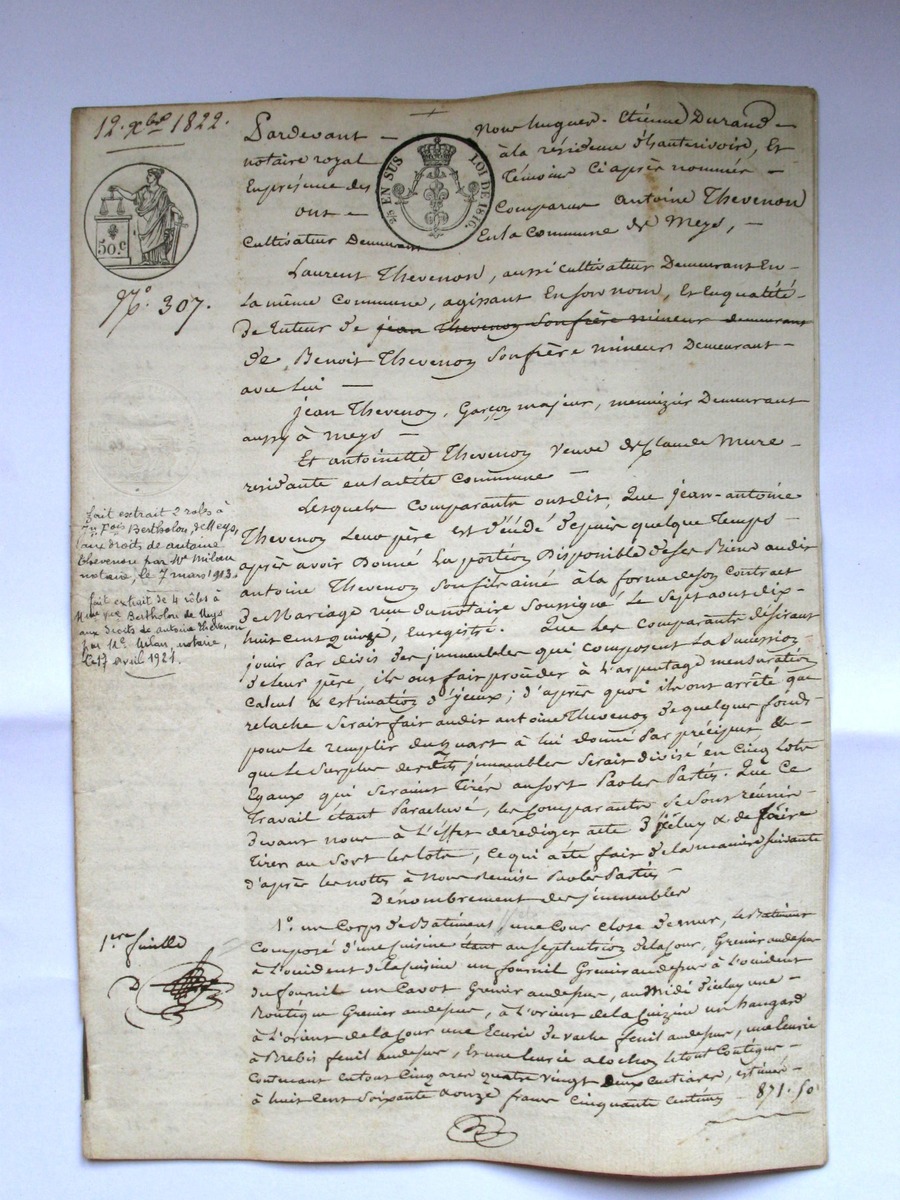 12. xbre 1822.
Pardevant — Nous hugues Étienne Durand —
notaire royal à la résidence d'hauterivoire, Et
En présence des témoins Ci après nommés —
ont — Comparus antoine Thevenon
Cultivateur Demeurant En la Commune de Meys, —
¼ EN SUS LOI DE 1816.
50.c
N.o 307.
Laurent Thevenon, aussi cultivateur Demeurant En —
La même Commune, agissant En son nom, Et En qualité —
de tuteur de jean Thevenon Son frère mineur demeurant
de Benoit Thevenon Son frère mineur Demeurant —
avec lui —
jean Thevenon, Garçon majeur, menuizier Demeurant
aussy à Meys —
Et antoinette Thevenon Veuve de Claude Mure —
residante en laditte Commune —
Lesquels Comparants ont dit, Que jean-antoine
Thevenon Leur père est décédé depuis quelque Temps —
après avoir Donné La portion Disponible de ses Biens audit
antoine Thevenon Son fils ainé à la forme de son Contract
de Mariage reçu du notaire Soussigné Le Sept aout dix-
huit cent Quinze, Enregistré. Que les Comparants désirant
jouir Par divis des immeubles qui composent La Succession
de Leur père, ils ont fait procéder à L'arpentage mensuration
Calcul & estimation d'yceux; d'après quoi ils ont arrêté que
relache Serait fait audit antoine Thevenon de quelques fonds
pour Le remplir du quart à lui donné Par préciput, & —
que Le Surplus desdits immeubles Serait divisé en Cinq Lots
Egaux qui Seraient Tirés au Sort Par les Parties. Que Ce
Travail étant Parachevé, les Comparants Se Sont réunis —
devant nous à L'effet de rediger acte d'iceluy & de faire
Tirer au Sort les lots, Ce qui a été fait de la maniere Suivante
d'après les nottes à Nous remise Par les Parties
Dénombrement des immeubles
1.o un Corps de Batiments, une Cour Close de mur, Le Batiment
Composé d'une cuisine tant au Septentrion de la Cour, Grenier au dessus
à L'occident de la Cuisine un fournil Grenier au dessus à L'occident
du fournil un Cavot Grenier au dessus, au Midi d'icluy une —
Boutique Grenier au dessus, à L'orient de la Cuizine un hangard
à L'orient de la Cour une Ecurie de vache fenil au dessus, une Ecurie
à Brebis fenil au dessus, Et une Ecurie à cochon le tout Contigue —
Contenant en tout Cinq ares quatre vingt deux centiares, estimés —
à huit Cent Soixante & onze francs Cinquante Centimes — 871. 50
fait extrait 2 roles à
Bertholon, de Meys,
aux droits de antoine
Thevenon par Me Milan
notaire, le 7 mars 1913.
fait extrait de 4 rôles à
Bertholon de Meys
aux droits de antoine Thevenon
par Me. Milan, notaire,
Le 17 avril 1921.
1.ere feuille